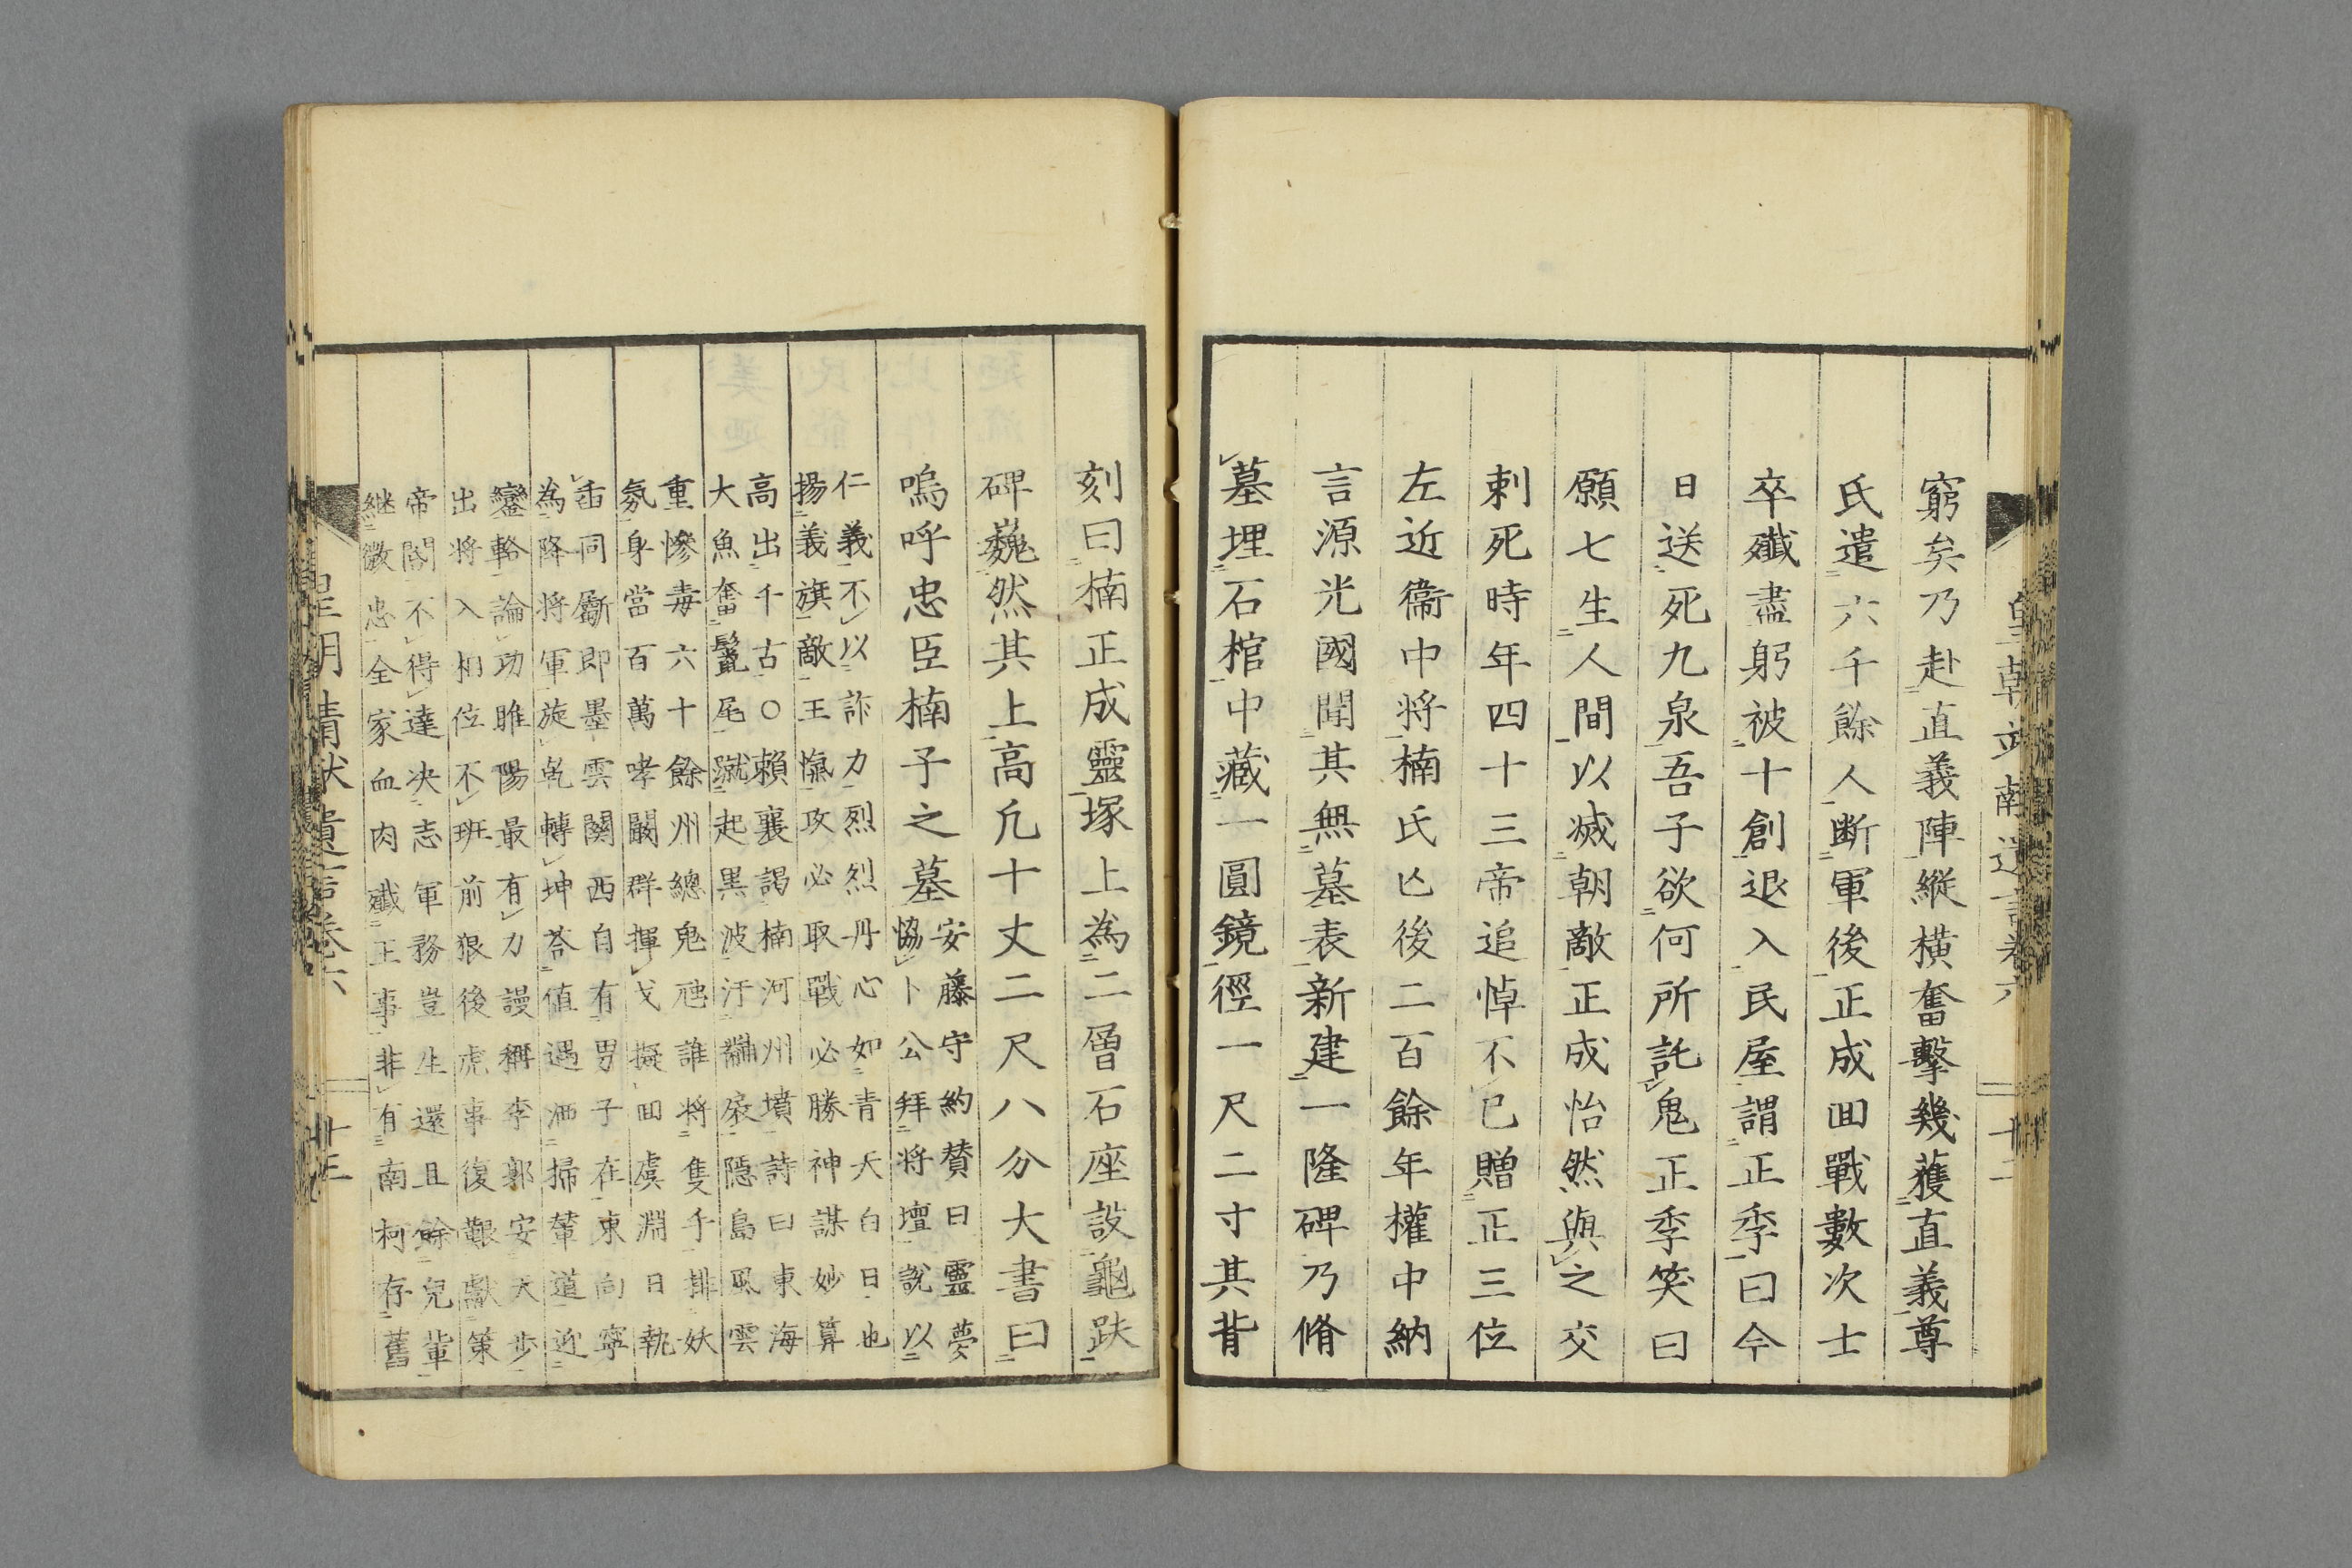 窮矣乃赴直義陣縱橫奮擊幾獲直義尊
氏遣六千餘人断軍後正成回戰數次士
卒殲盡躬被十創退入民屋謂正季曰今
日送死九泉吾子欲何所託鬼正季笑曰
願七生人間以滅朝敵正成怡然與之交
刺死時年四十三帝追悼不已贈正三位
左近衞中将楠氏亡後二百餘年權中納
言源光國聞其無墓表新建一隆碑乃脩
墓埋石棺中藏一圓鏡徑一尺二寸其背
刻曰楠正成靈塚上為二層石座設龜趺
碑巍然其上高凡十丈二尺八分大書曰
嗚呼忠臣楠子之墓
安藤守約賛曰靈夢
恊卜公拜将壇說以
仁義不以詐力烈烈丹心如青天白日也
揚義旗敵王愾攻必取戰必勝神謀妙算
高出千古○賴襄謁楠河州墳詩曰東海
大魚奮鬣尾蹴起黑波汙黼扆隱島風雲
重慘毒六十餘州總鬼虺誰将隻手排妖
氛身當百萬哮闞群揮戈擬回虞淵日執
臿同斸即墨雲関西自有男子在東向寧
為降将軍旋乾轉坤荅值遇洒掃輦道迎
鑾輅論功睢陽最有力謾稱李郭安天步
出将入相位不班前狼後虎事復艱獻策
帝閽不得達决志軍務豈生還且餘兒輩
継微忠全家血肉殲王事非有南柯存舊